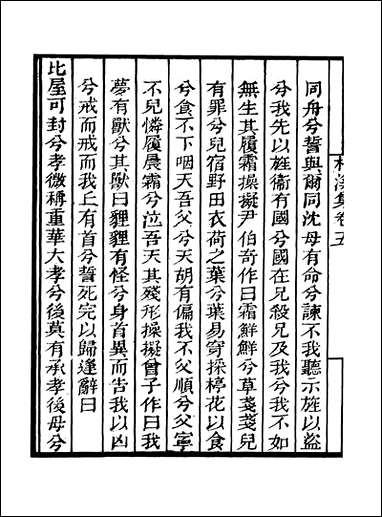 同舟兮誓與爾同沈母有命兮諫不我聽示旌以盜
兮我先以旌衞有國兮國在兄殺兄及我兮我不如
無生其履霜操擬尹伯奇作曰霜鮮鮮兮草戔戔兒
有罪兮兒宿野田衣荷之葉兮葉易穿採楟花以食
兮食不下咽天吾父兮天胡有偏我不父順兮父寧
不兒憐履晨霜兮泣吾天其殘形操擬曾子作曰我
夢有獸兮其獸曰貍貍有怪兮身首異而告我以凶
兮戒而戒而我上有首兮誓死完以歸逢辭曰
比屋可封兮孝微稱重華大孝兮後莫有承孝後母兮
集卷五